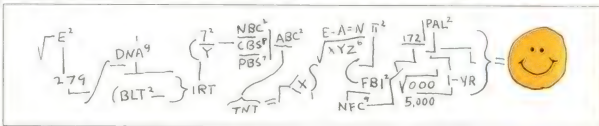 √E²
279
DNA⁹
(BLT²
}IRT
(7²
Y
NBC²
CBS⁸
PBS⁷
ABC²
TNT=
(X)
E-A=N
√XYZ⁶
π²
FBI²
NFC⁹
172
PAL²
√000
5,000
1-YR
}=